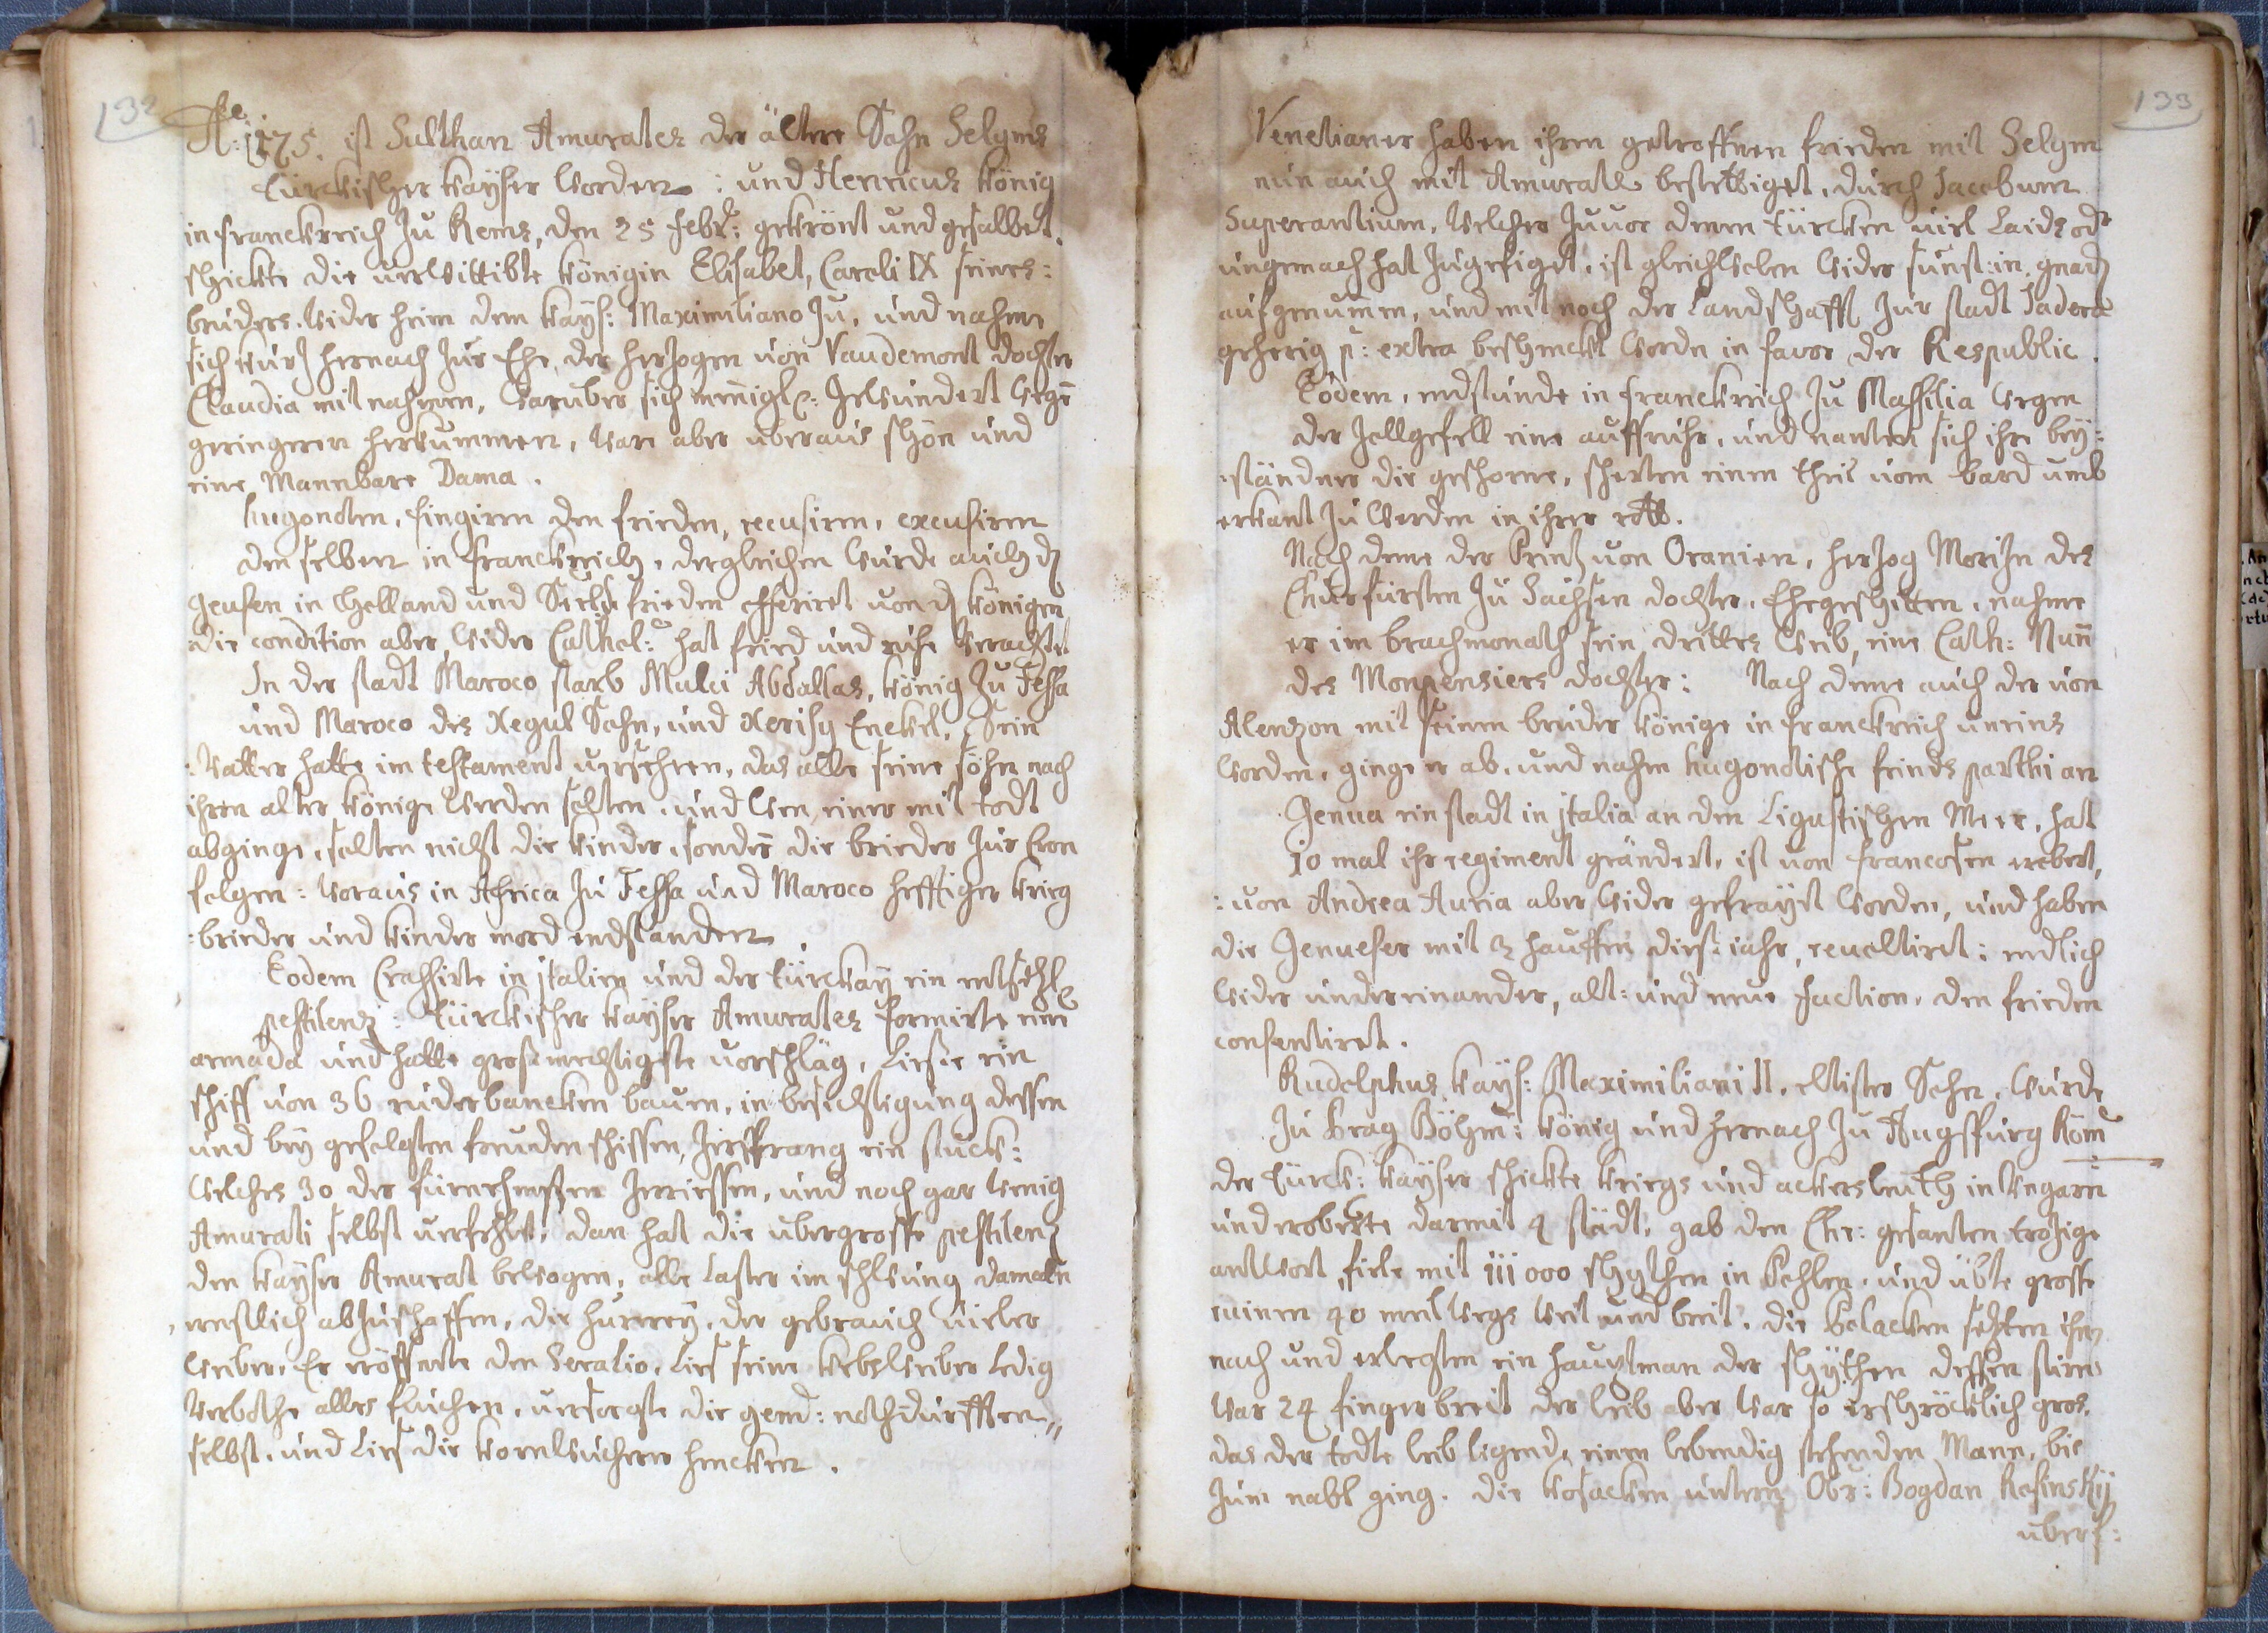 132
Aō: 1575. ist Sulthan Amurates der ältere Sohn Selyms
türckischer kayser worden: und Henricus könig
in franckreich zu Rems, den 25 febr: gekrönt und gesalbet.
schickte die verwittibte königin Elisabet, Caroli IX seines:
bruders. wider heim dem kays: Maximiliano zu, und nahme
sich kurz hernach zur Ehe, der herzogen von Vaudemont dochter
Claudia mit nahmen, warüber sich menigl: zerwundert wegen
geringeren herkummen, ware aber uberaus schön und
eine Mannbare Dama.
hugonoten, fingiren den frieden, recusiren, excusiren
denselben in franckreich, dergleichen wurde auch d
Geusen in holland und Seeln frieden offeriret von d königen
die condition aber, wider Cathol: hat fried und ruhe verachtet
In der stadt Maroco starb Mulei Abdallas, könig zu Fessa
und Maroco des Xegul Sohn, und Xerify Enckel, Sein
vatter hatte im testament versehen, das alle seine söhn nach
ihren alter könige werden solten, und wen einer mit todt
abginge, solten nicht die kinder, sondern die brieder zur Cron
folgen: woraus in Africa zu Fessa und Maroco hefftiger krieg
:brieder und kinder mord endstanden.
Eodem Crassirte in jtalien und der türckay ein entsetzl
pestilenz: türckischer kayser Amurates formirte eine
armada und hatte grosmechtigste vorschläg, Liesse ein
schiff von 36 ruderbancken bauen, in besichtigung dessen
und bey gefolgten freudenschissen, zersprang ein stuck:
welches 30 der fürnehmsten zerriessen, und noch gar wenig
Amurati selbst verfehlet, dan hat die ubergrosse pestilenz
den kayser Amurat bewogen, alle Laster im schwung damaln
ernstlich abzuschaffen, die hurerey, der gebrauch vieler
weiber. Er eröffnete den Seralio, Lies seine kebsweiber Ledig
Verbothe alles fluchen, versorgte die gemd: nothdurfften
selbst, und Lies die kornwucherer hencken.
133
Venetianer haben ihren getroffnen frieden mit Selym
nun auch mit Amurath bestettiget, durch Jacobum
Superantium, welcher zuvor denen türcken viel Laids od
ungemach hat zugefiget, ist gleichwolen wider sunst: in gnad
aufgenummen, und mit noch der Landschafft zur stadt Jadera
geherig p: extra beschenckt worden in favor der Respublic.
Eodem, endstunde in franckreich zu Massilia wegen
der zollgefell eine auffruhr, und nanten sich ihre bey:
:ständner die geschorne, scherten einen theil vom bard umb
erkant zu werden in ihrer rott.
Nach deme der Prinz von Oranien, herzog Morizn des
Churfürsten zu Sachsen dochter, Ehegeschitten, nahme
er im brachmonath sein drittes weib, eine Cath: Nunn
des Monpensiers dochter: Nach deme auch der von
Alenzon mit seinem bruder könige in franckreich uneins
worden, ginge er ab, und nahm hugonotische feinds parthi an
Genua ein stadt in jtalia an den Ligustischen Meer, hat
10 mal ihr regiment geändert, ist von francosen erobert,
:von Andrea Auria aber wider gefrayet worden, und haben
die Genueser mit 3 hauffen dies: jahr, revoltiret: endlich
wider undereinander, alt: und neue faction, den frieden
consentiret.
Rudolphus kays: Maximiliani II. eltister Sohn, wurde
zu Prag Böhm: könig und hernach zu Augspurg Röm
der türck: kayser schickte kriegs und ackersleuth in Ungarn
und eroberte darmit 4 städt, gab den Chr: gesanten trozige
antwort, fiele mit 111000 schythen in Pohlen, und übte grosse
ruinen 40 meil wegs weit und breit. die Polacken sezten ihn
nach und erlegten ein hauptman der schythen dessen stirn
war 24 fingerbreit der leib aber war so erschröcklich gros,
das der todte leib ligend, einen lebendig stehenden Mann, bis
zum nabl ging. die kosacken untern Obr: Bogdan Rosinskij
uberf: